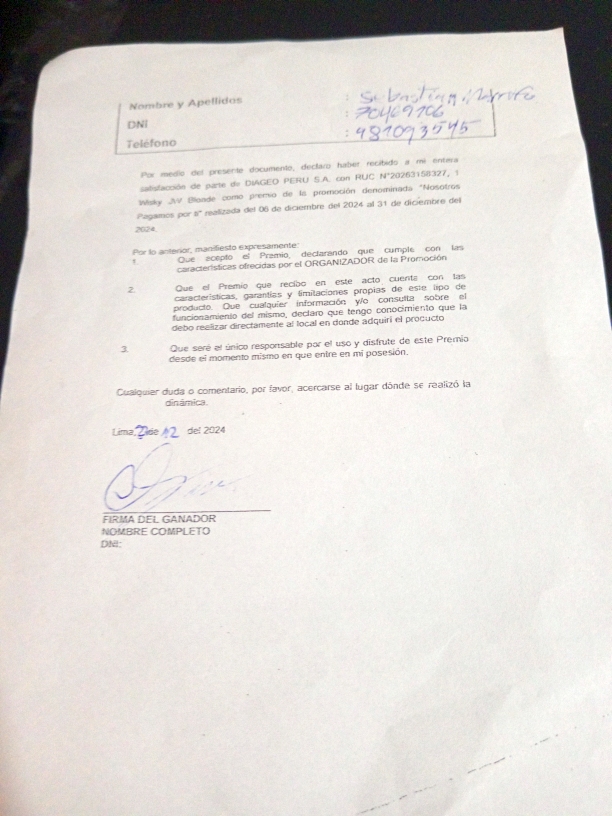 Nombre y Apellidos : Sebastian
DNI : 70469106
Teléfono : 981093545
Por medio del presente documento, declaro haber recibido a mi entera
satisfacción de parte de DIAGEO PERU S.A. con RUC N°20263158327, 1
Wisky JW Blonde como premio de la promoción denominada "Nosotros
Pagamos por ti" realizada del 06 de diciembre del 2024 al 31 de diciembre del
2024.
Por lo anterior, manifiesto expresamente:
1. Que acepto el Premio, declarando que cumple con las
características ofrecidas por el ORGANIZADOR de la Promoción
2. Que el Premio que recibo en este acto cuenta con las
características, garantías y limitaciones propias de este tipo de
producto. Que cualquier información y/o consulta sobre el
funcionamiento del mismo, declaro que tengo conocimiento que la
debo realizar directamente al local en donde adquirí el producto
3. Que seré el único responsable por el uso y disfrute de este Premio
desde el momento mismo en que entre en mi posesión.
Cualquier duda o comentario, por favor, acercarse al lugar donde se realizó la
dinámica.
Lima, de 12 del 2024
FIRMA DEL GANADOR
NOMBRE COMPLETO
DNI: